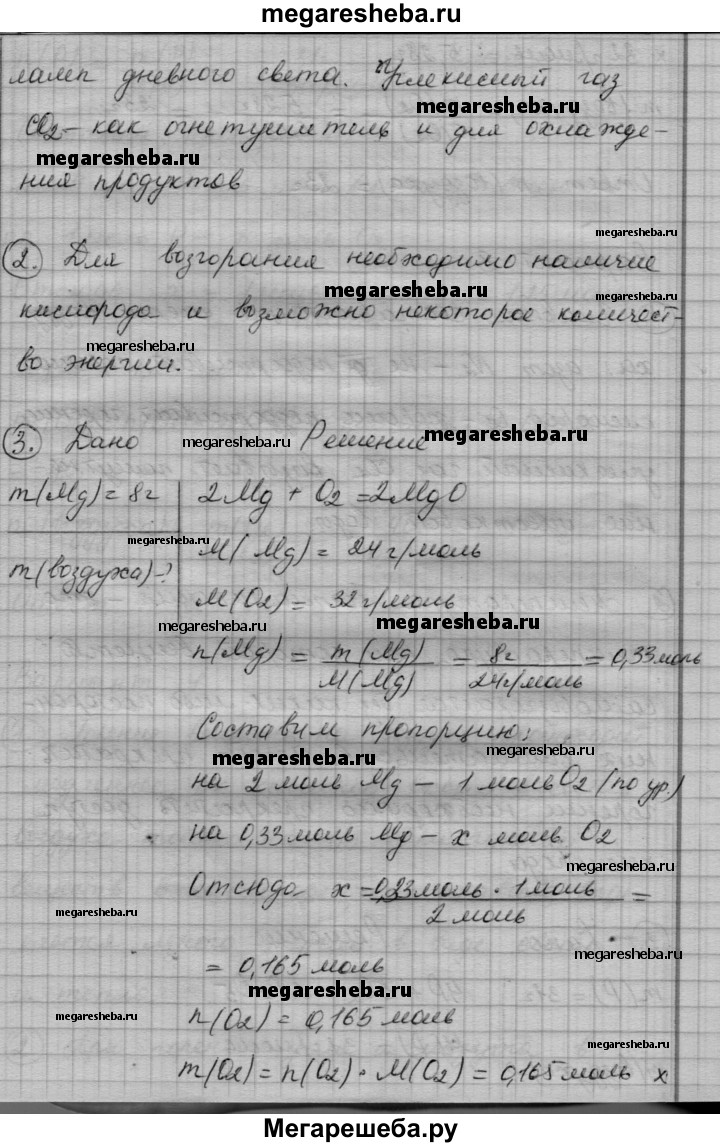 megaresheba.ru
ламп дневного света. Углекислый газ
megaresheba.ru
CO2 - как огнетушитель и для охлажде-
megaresheba.ru
ния продуктов
megaresheba.ru
2. Для возгорания необходимо наличие
megaresheba.ru
megaresheba.ru
кислорода и возможно некоторое количест-
megaresheba.ru
во энергии.
3. Дано Решение
megaresheba.ru megaresheba.ru
m(Mg)=8г 2Mg + O2 = 2MgO
megaresheba.ru
m(воздуха)-? M(Mg) = 24 г/моль
M(O2) = 32 г/моль
megaresheba.ru
megaresheba.ru
n(Mg) = m(Mg)/M(Mg) = 8г/24г/моль = 0,33моль
Составим пропорцию:
megaresheba.ru
megaresheba.ru
на 2 моль Mg - 1 моль O2 (по ур.)
на 0,33моль Mg - x моль O2
megaresheba.ru
Отсюда x = 0,33моль · 1моль / 2 моль =
megaresheba.ru
megaresheba.ru
= 0,165 моль
megaresheba.ru
n(O2) = 0,165 моль
megaresheba.ru
megaresheba.ru
m(O2) = n(O2) · M(O2) = 0,165 моль x
Мегарешеба.ру